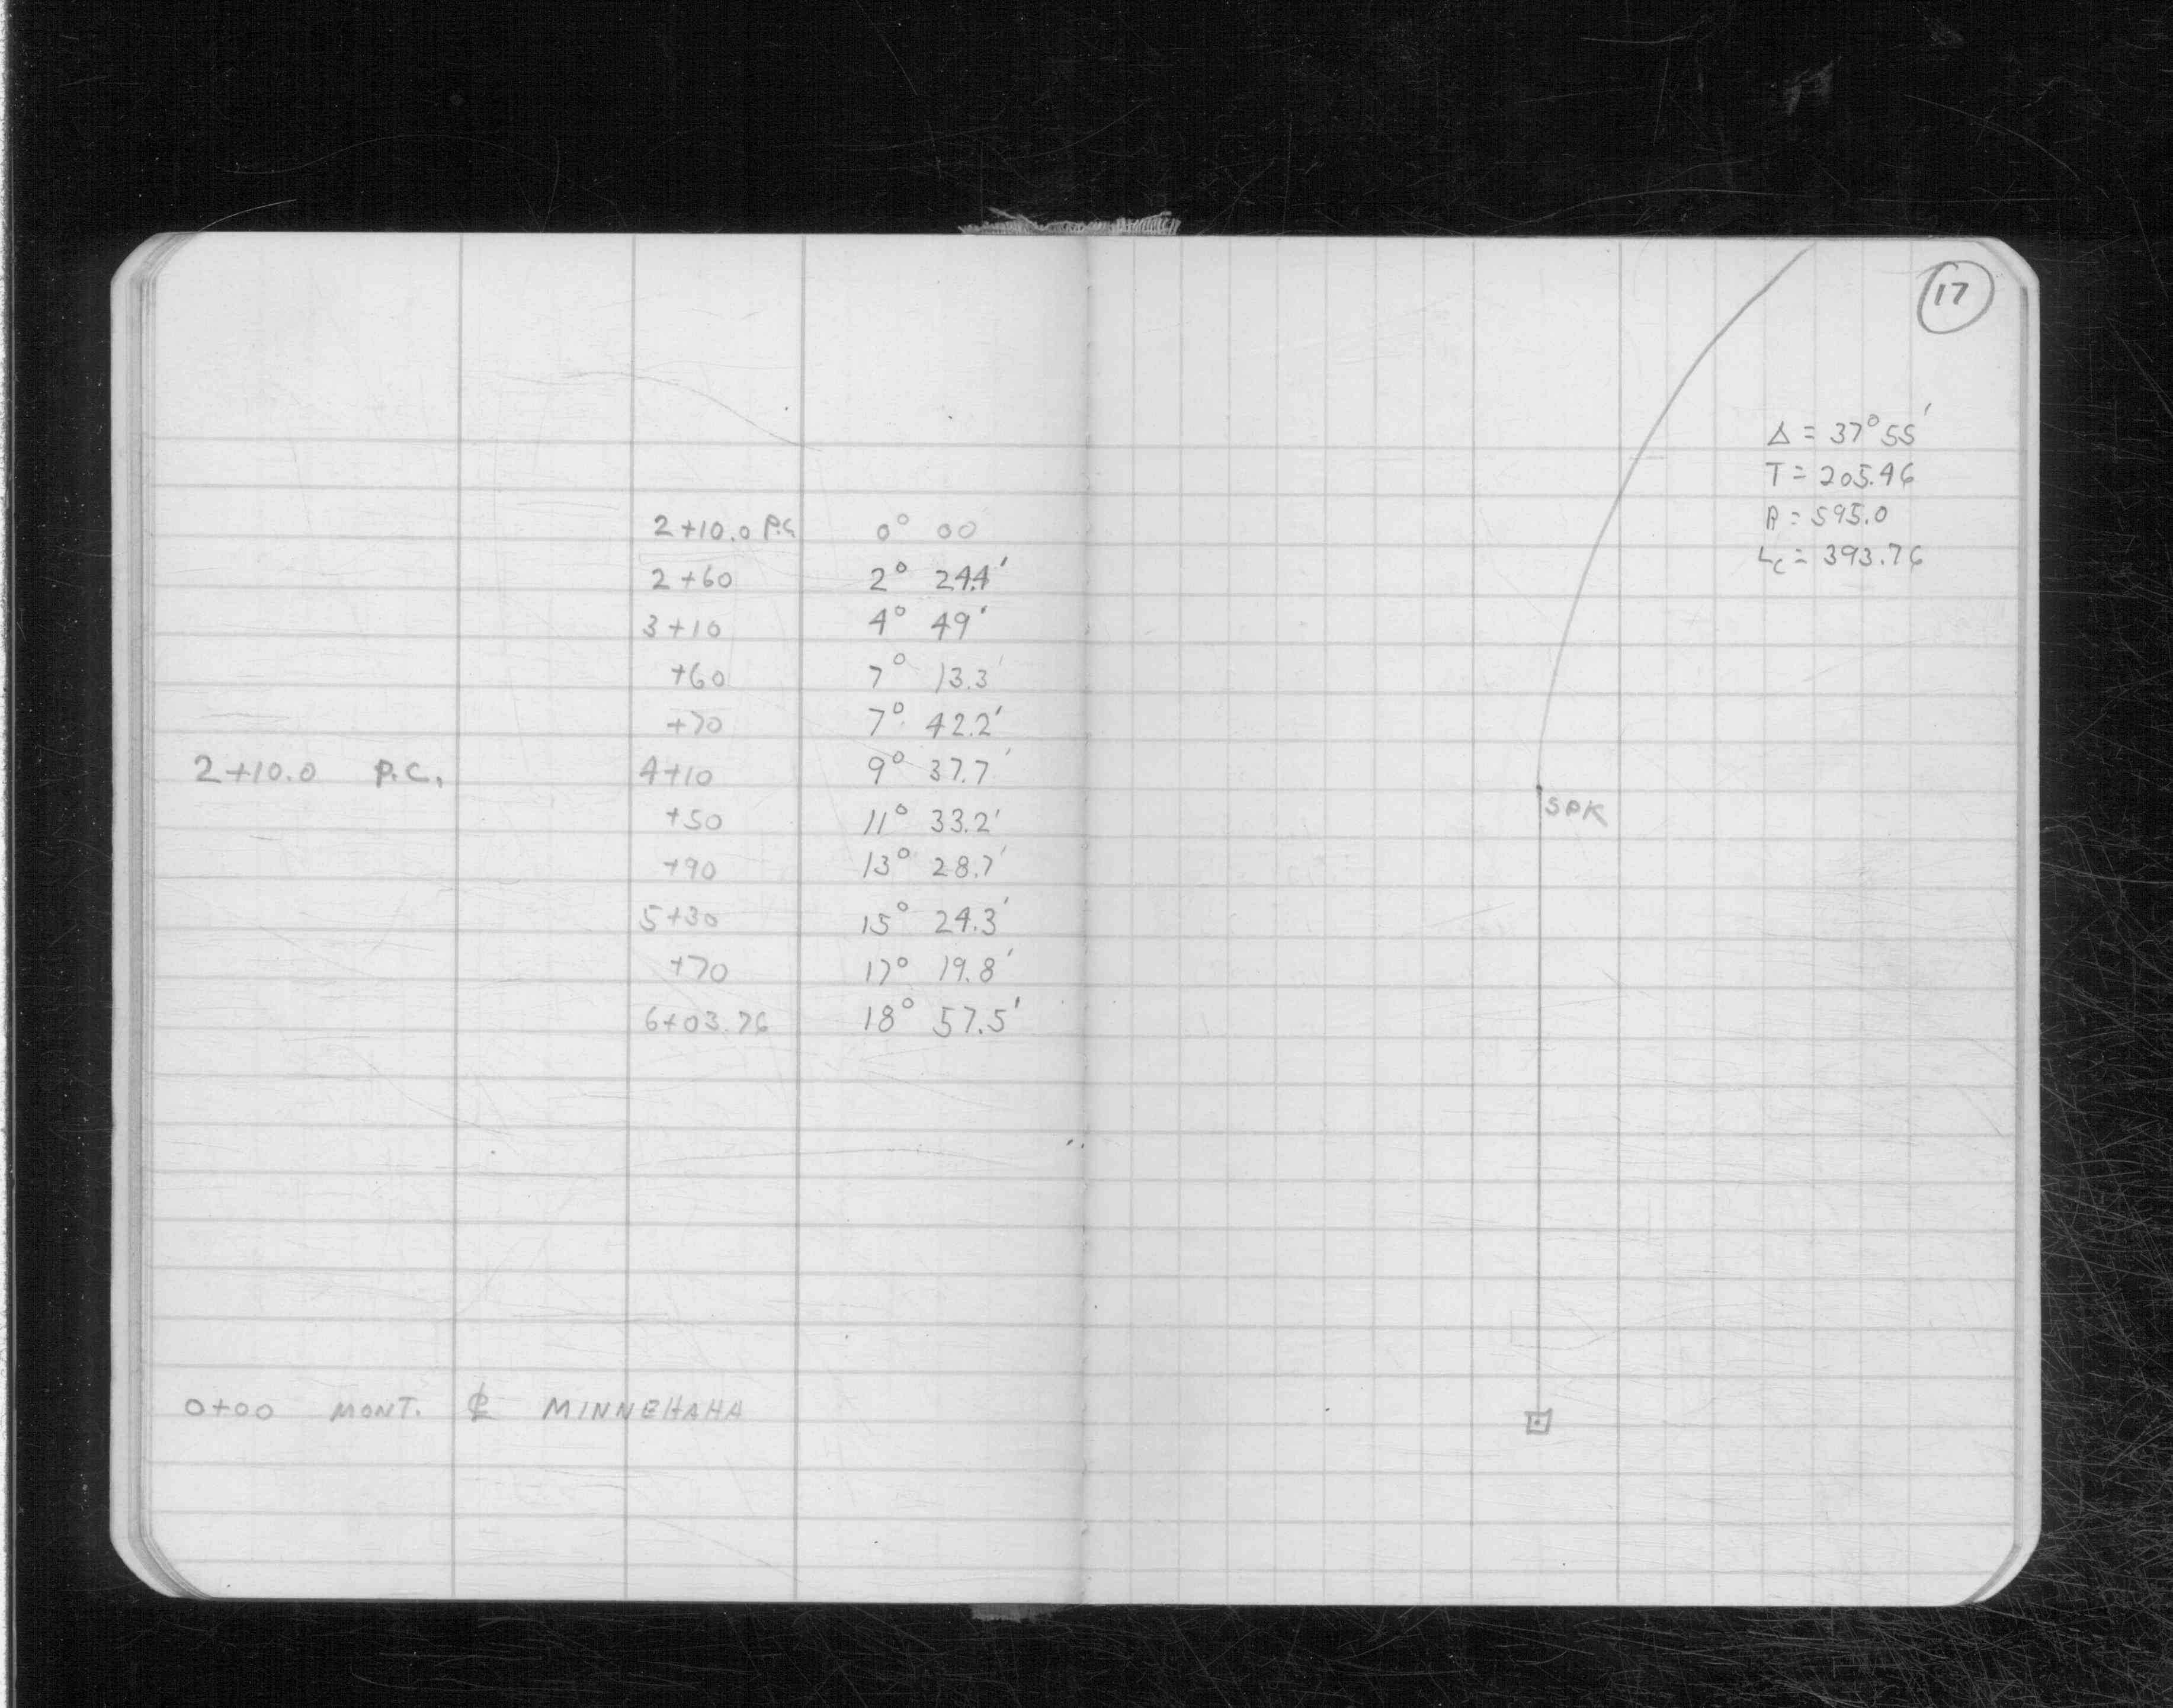 2+10.0 P.C. 0° 00
2+60 2° 24.4'
3+10 4° 49'
+60 7° 13.3'
+70 7° 42.2'
2+10.0 P.C. 4+10 9° 37.7'
+50 11° 33.2'
+90 13° 28.7'
5+30 15° 24.3'
+70 17° 19.8'
6+03.76 18° 57.5'
0+00 MONT. ℄ MINNEHAHA
17
Δ = 37° 55'
T = 205.46
R = 595.0
Lc = 393.76
SPK